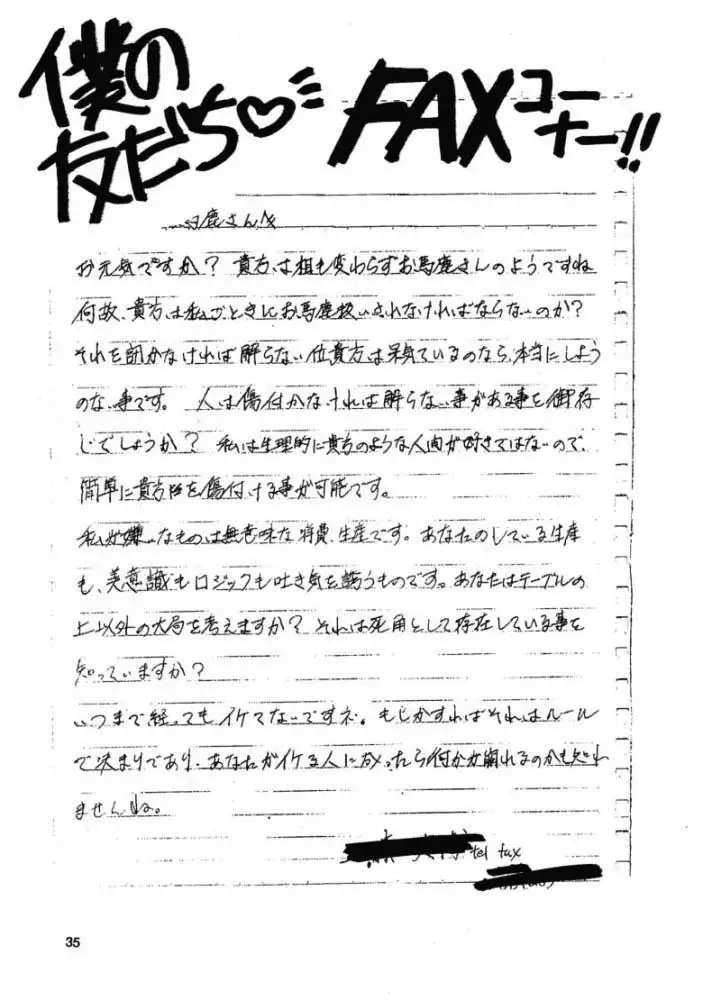 僕の
友だち♡
FAXコーナー!!
馬鹿さんへ
お元気ですか？ 貴方は相も変わらずお馬鹿さんのようですね
何故、貴方は私ごときにお馬鹿扱いされなければならないのか？
それを訊かなければ解らない位貴方は呆気ているのなら、本当にしよう
のない事です。 人は傷付かなければ解らない事がある事を御存
じでしょうか？ 私は生理的に貴方のような人間が好きではないので、
簡単に貴方を傷付ける事が可能です。
私が嫌いなものは無意味な消費、生産です。あなたのしている生産
も、美意識もロジックも吐き気を誘うものです。あなたはテーブルの
上以外の大局を考えますか？ それは死角として存在している事を
知っていますか？
いつまで経ってもイケてないですネ。もしかすればそれはルール
で決まりであり、あなたがイケる人になったら何かが崩れるのかも知れ
ませんね。
tel fax
35